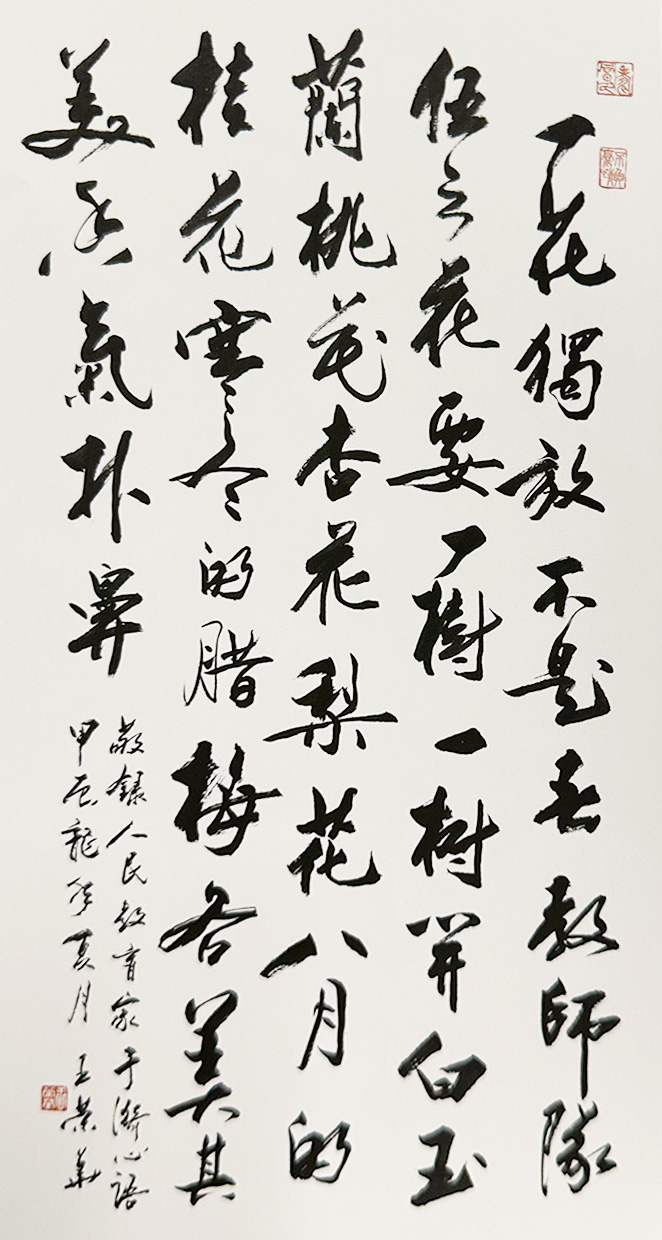 一花獨放不是春教師隊
伍之花要一樹一樹開白玉
蘭桃花杏花梨花八月的
桂花寒冷的腊梅各美其
美香氣扑鼻
敬錄人民教育家于漪心語
甲辰龍年夏月 王荣華